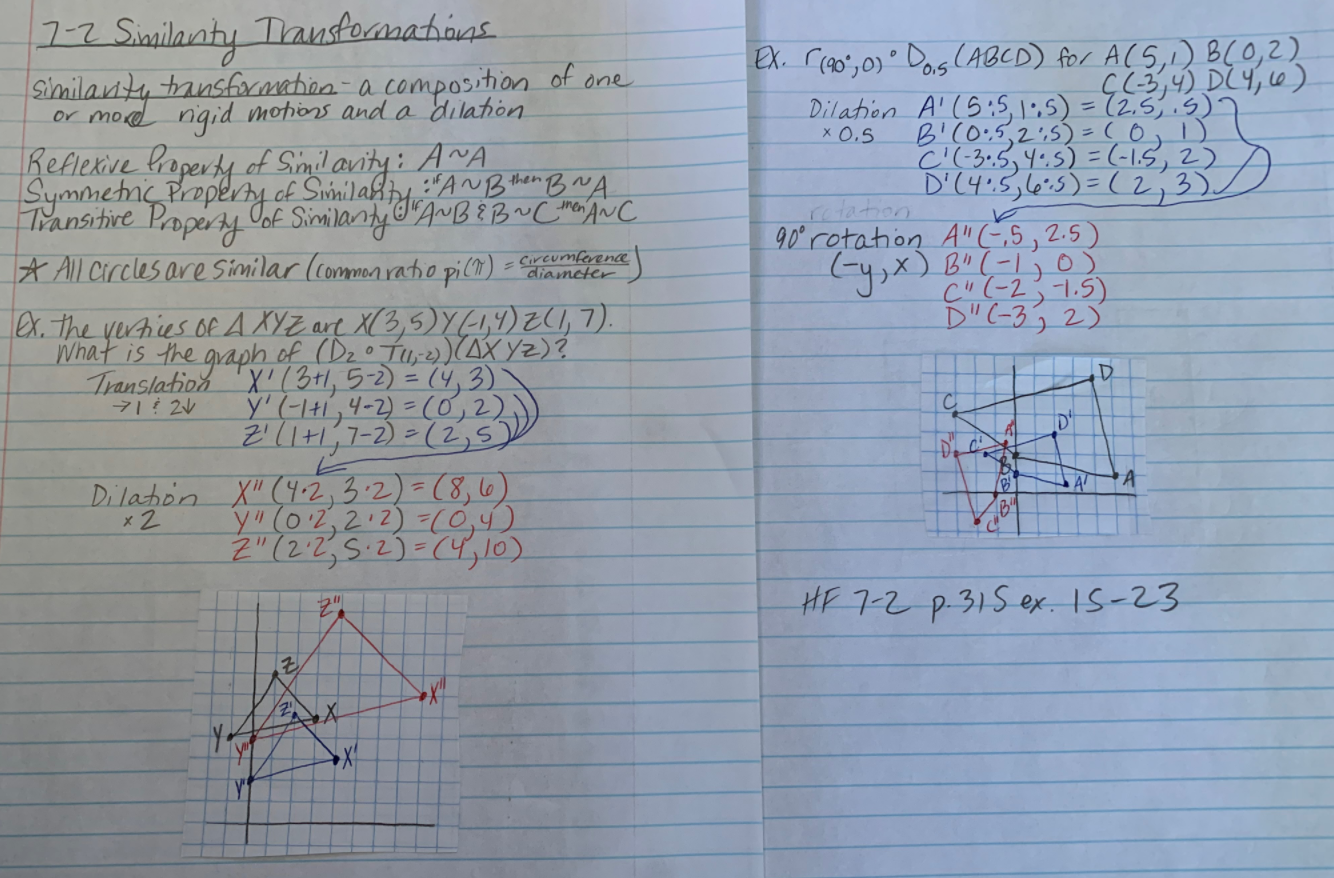 7-2 Similarity Transformations
similarity transformation - a composition of one
or more rigid motions and a dilation
Reflexive Property of Similarity: A~A
Symmetric Property of Similarity: if A~B then B~A
Transitive Property of Similarity: if A~B & B~C then A~C
☆ All circles are similar (common ratio pi(π) = circumference/diameter)
Ex. The vertices of Δ XYZ are X(3,5) Y(-1,4) Z(1,7).
What is the graph of (D₂ ∘ T(1,-2))(ΔXYZ)?
Translation X'(3+1, 5-2) = (4, 3)
→1 & 2↓ Y'(-1+1, 4-2) = (0, 2)
Z'(1+1, 7-2) = (2, 5)
Dilation X"(4·2, 3·2) = (8,6)
×2 Y"(0·2, 2·2) = (0,4)
Z"(2·2, 5·2) = (4,10)
Z"
Z
X"
Z'
X
Y
Y"
X'
Y'
Ex. r(90°,0) ∘ D0.5 (ABCD) for A(5,1) B(0,2)
C(-3,4) D(4,6)
Dilation A'(5·.5, 1·.5) = (2.5, .5)
×0.5 B'(0·.5, 2·.5) = (0, 1)
C'(-3·.5, 4·.5) = (-1.5, 2)
D'(4·.5, 6·.5) = (2, 3)
rotation
90° rotation A"(-.5, 2.5)
(-y, x) B"(-1, 0)
C"(-2, -1.5)
D"(-3, 2)
D
C
D'
A"
D"
C'
B
A
B'
A'
B"
C"
HF 7-2 p.315 ex. 15-23